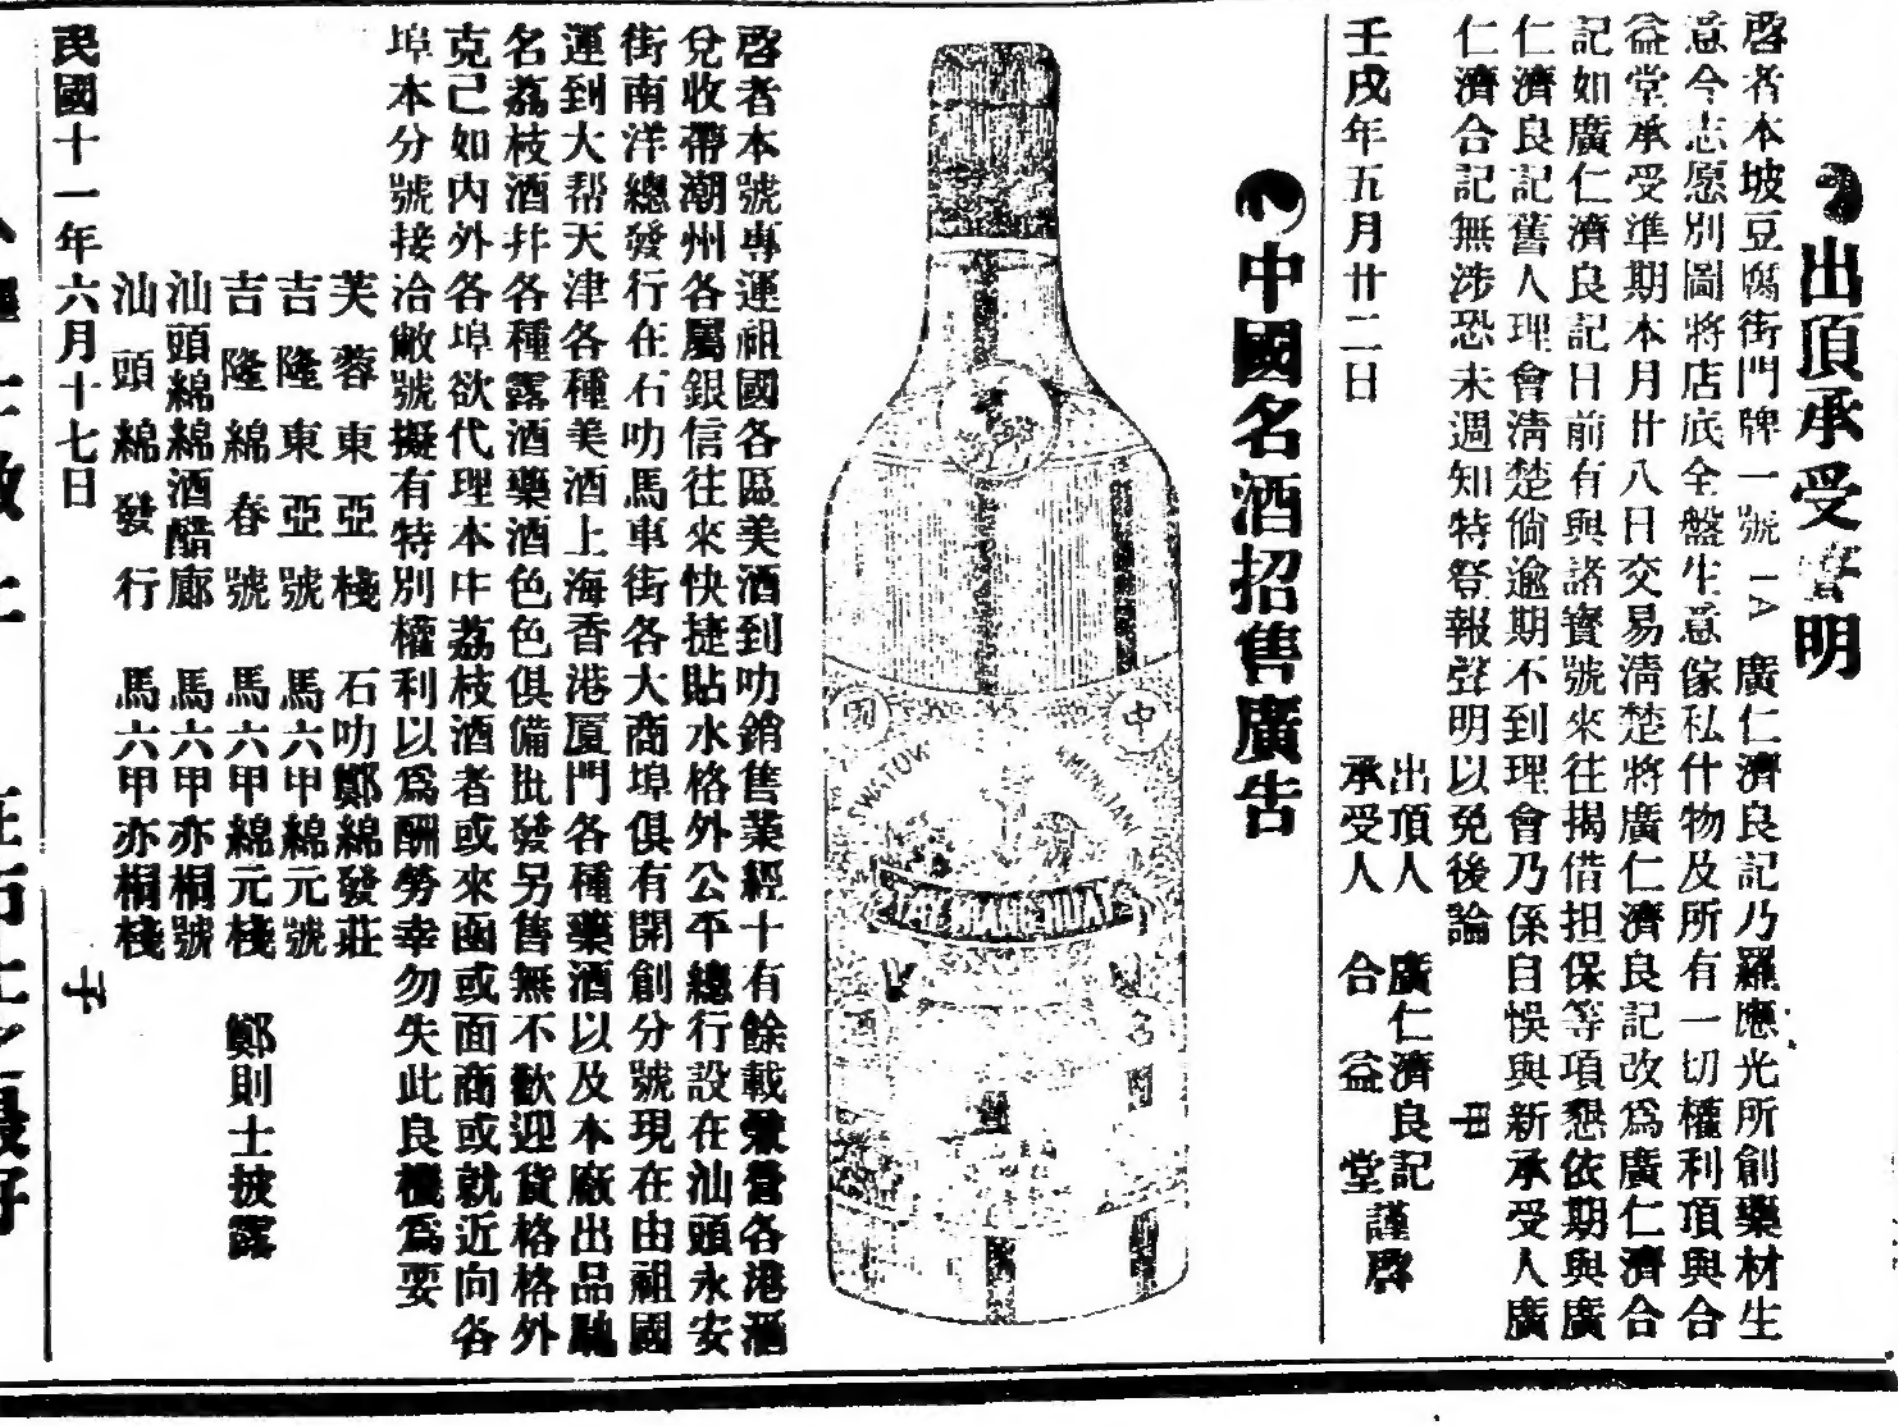 出頂承受聲明
啓者本坡豆腐街門牌一號1A廣仁濟良記乃羅應光所創藥材生
意今志愿別圖將店底全盤生意傢私什物及所有一切權利頂與合
益堂承受準期本月廿八日交易清楚將廣仁濟良記改爲廣仁濟合
記如廣仁濟良記日前有與諸寳號來往揭借担保等項懇依期與廣
仁濟良記舊人理會清楚倘逾期不到理會乃係自悞與新承受人廣
仁濟合記無涉恐未週知特登報聲明以免後論
出頂人 廣仁濟良記
承受人 合益堂
謹啓
壬戌年五月廿二日
中國名酒招售廣告
中國
SWATOW
TAI KIANG HUAT
啓者本號專運祖國各區美酒到叻銷售業經十有餘載兼營各港滙
兌收帶潮州各屬銀信往來快捷貼水格外公平總行設在汕頭永安
街南洋總發行在石叻馬車街各大商埠俱有開創分號現在由祖國
運到大帮天津各種美酒上海香港厦門各種藥酒以及本廠出品馳
名荔枝酒幷各種露酒藥酒色色俱備批發另售無不歡迎貨格格外
克己如内外各埠欲代理本中荔枝酒者或來函或面商或就近向各
埠本分號接洽敝號擬有特別權利以爲酬勞幸勿失此良機爲要
芙蓉東亞棧 石叻鄭綿發莊
吉隆東亞號 馬六甲綿元號
吉隆綿春號 馬六甲綿元棧 鄭則士披露
汕頭綿綿酒醋廊 馬六甲亦桐號
汕頭綿發行 馬六甲亦桐棧
民國十一年六月十七日